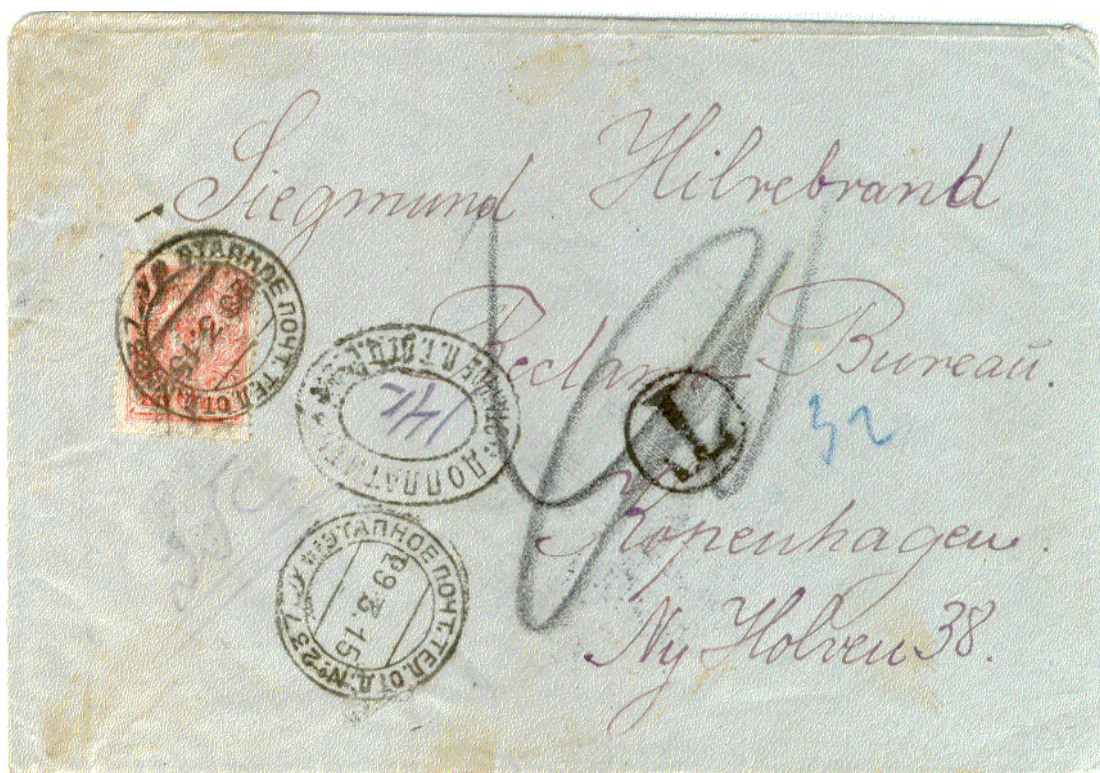 Siegmund Hilvebrand
Reclam-Bureau.
32
Kopenhagen.
Ny Holveu 38.
ЭТАПНОЕ ПОЧТ. ТЕЛ. ОТД. № 237
29.3.15
ДОПЛАТИТЬ
14к
T
ЭТАПНОЕ ПОЧТ. ТЕЛ. ОТД. № 237
29.3.15